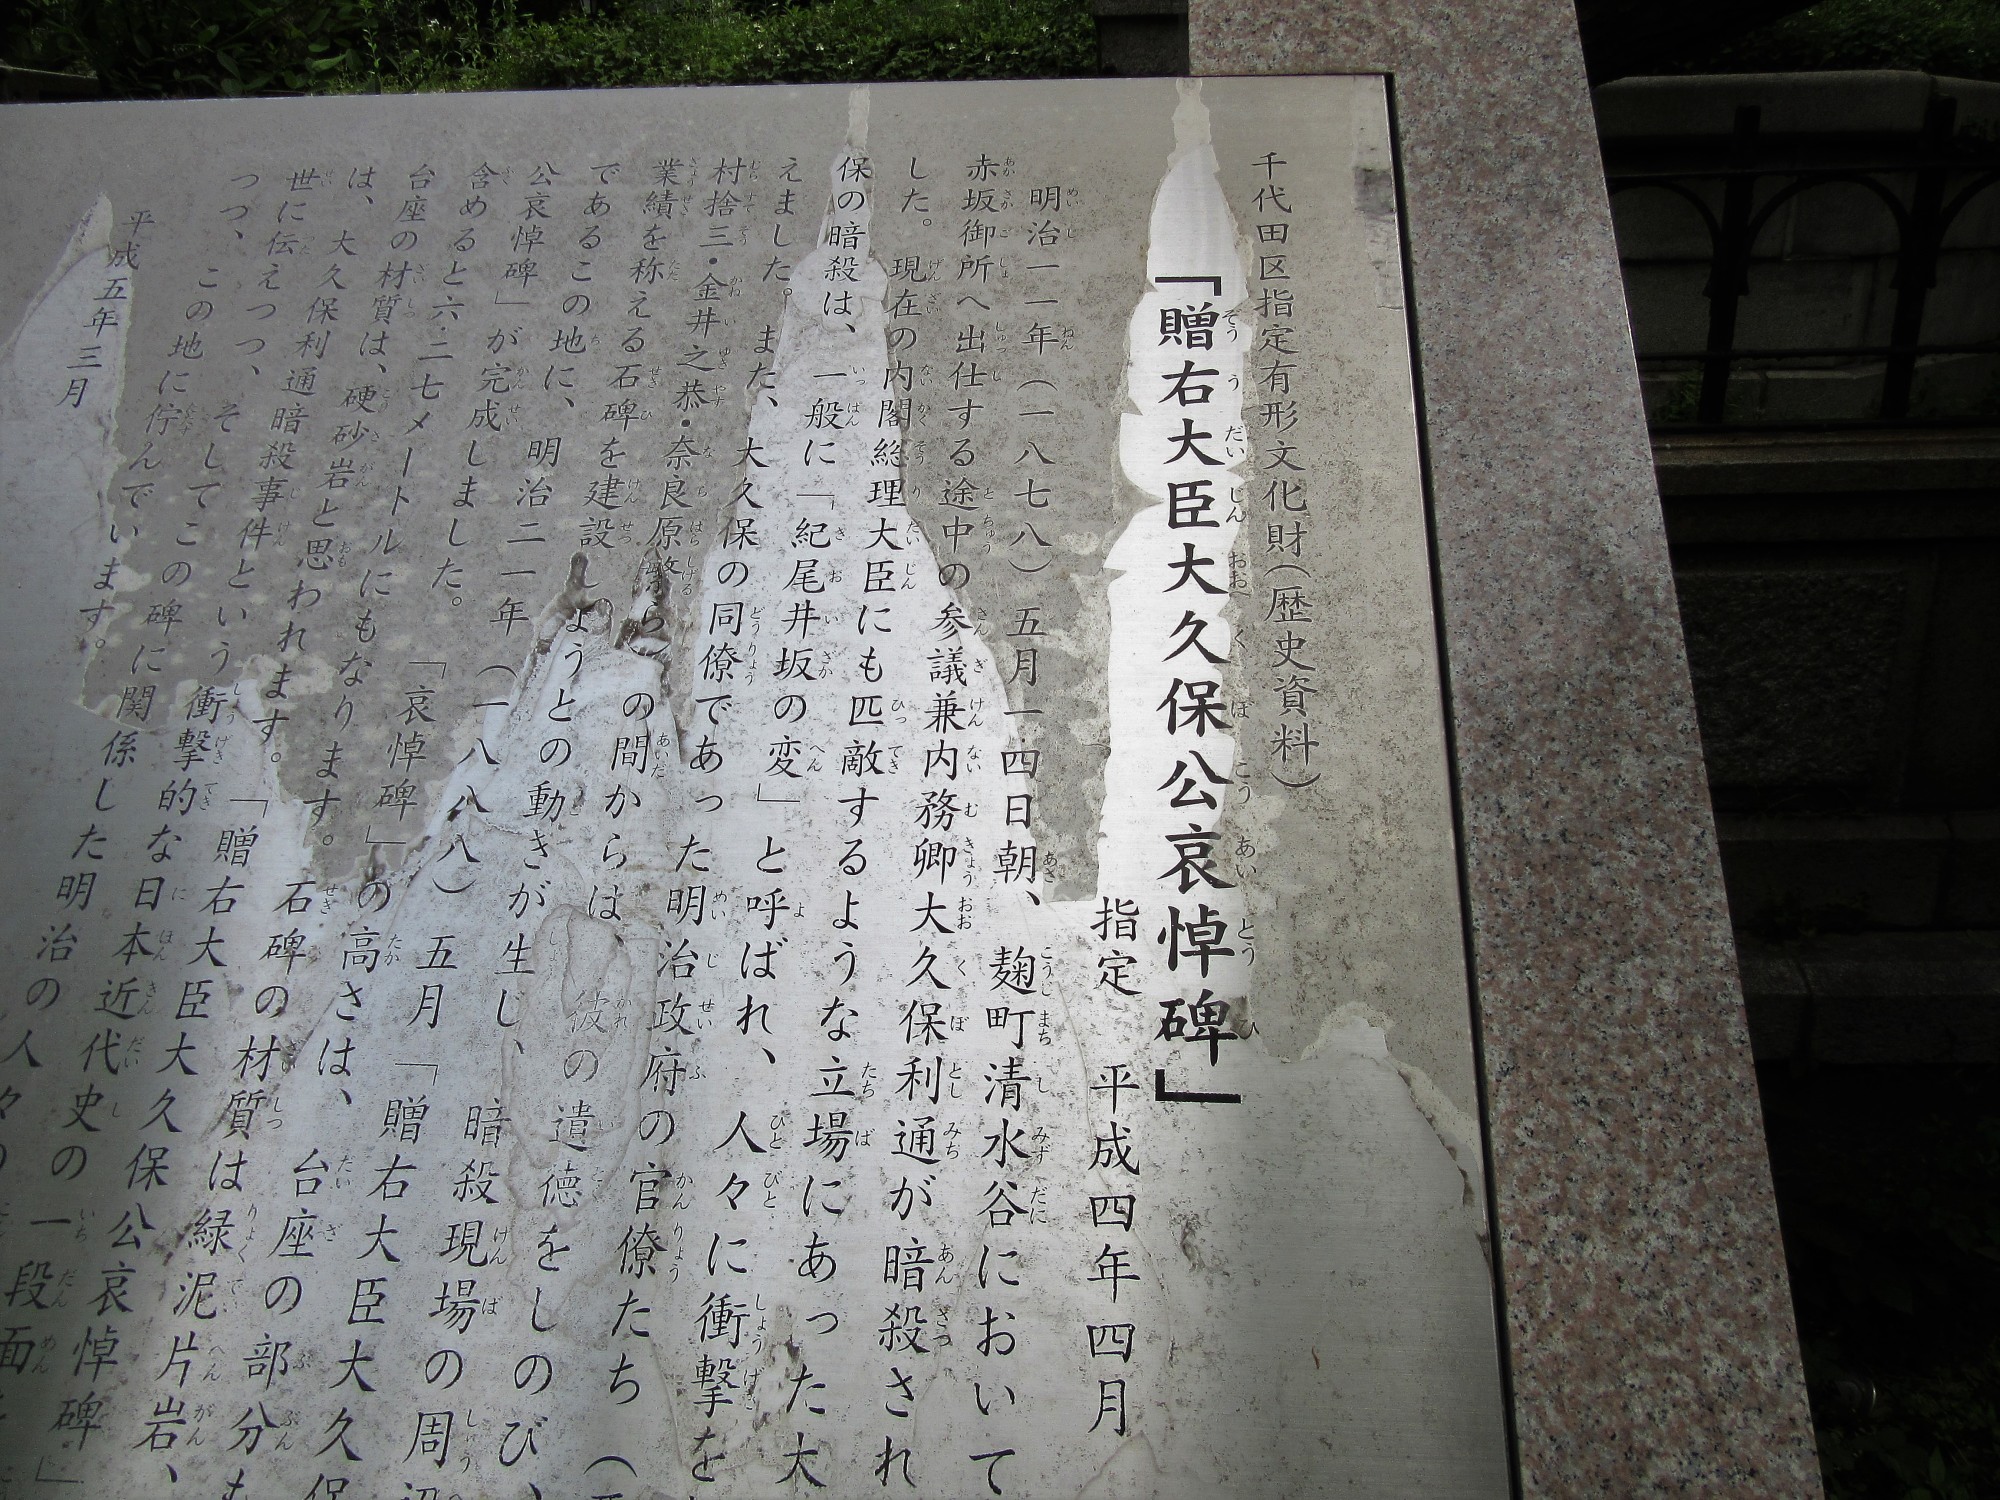 千代田区指定有形文化財（歴史資料）
「贈右大臣大久保公哀悼碑」
指定 平成四年四月
明治一一年（一八七八）五月一四日朝、麹町清水谷において
赤坂御所へ出仕する途中の参議兼内務卿大久保利通が暗殺され
した。現在の内閣総理大臣にも匹敵するような立場にあった大
保の暗殺は、一般に「紀尾井坂の変」と呼ばれ、人々に衝撃を
えました。また、大久保の同僚であった明治政府の官僚たち（
村捨三・金井之恭・奈良原繁ら）の間からは彼の遺徳をしのび、
業績を称える石碑を建設しようとの動きが生じ、暗殺現場の周
であるこの地に、明治二一年（一八八八）五月「贈右大臣大久保
公哀悼碑」が完成しました。「哀悼碑」の高さは、台座の部分も
含めると六．二七メートルにもなります。石碑の材質は緑泥片岩、
台座の材質は、硬砂岩と思われます。「贈右大臣大久保公哀悼碑」
は、大久保利通暗殺事件という衝撃的な日本近代史の一段面を
世に伝えつつ、そしてこの碑に関係した明治の人々の
つつ、この地に佇んでいます。
平成五年三月